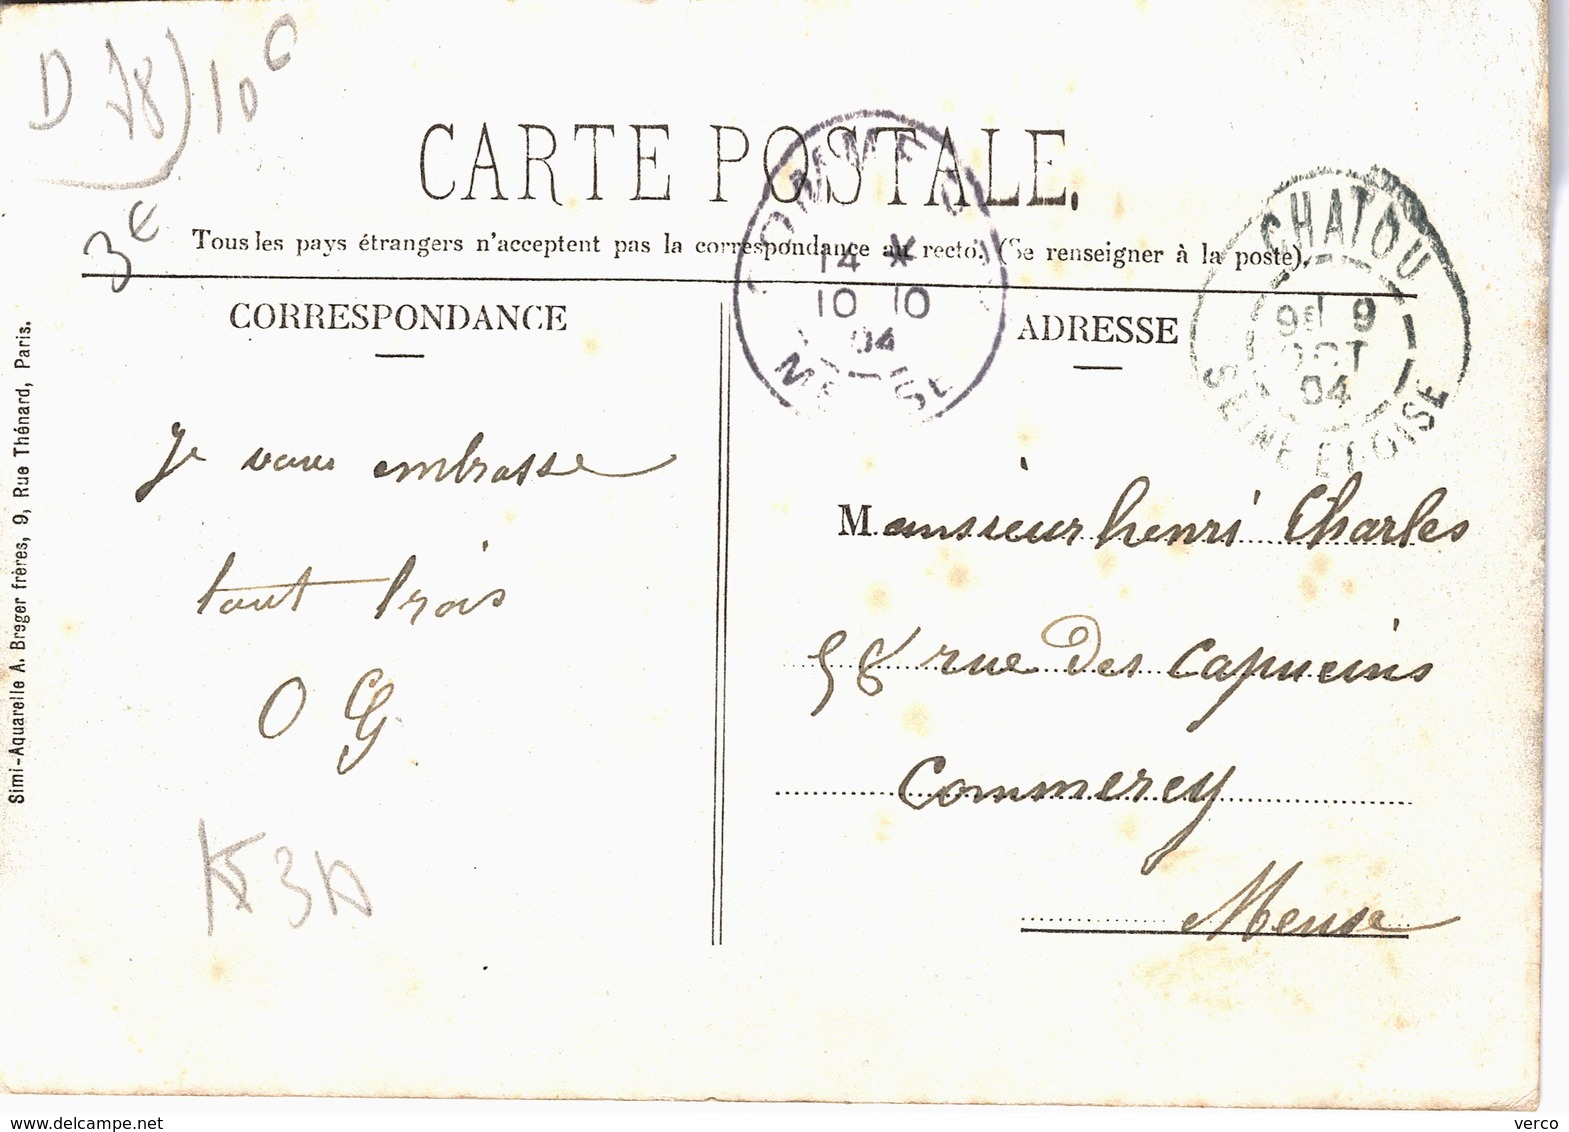 D 78) 10€
3€
CARTE POSTALE.
Tous les pays étrangers n'acceptent pas la correspondance au recto. (Se renseigner à la poste).
14 *
10 10
04
CHATOU
9E 9
OCT
04
SEINE ET OISE
CORRESPONDANCE
Je vous embrasse
tout trois
O G
ADRESSE
Monsieur henri Charles
58 rue Des Capucins
Commercy
Meuse
Simi-Aquarelle A. Breger frères, 9, Rue Thénard, Paris.
verco